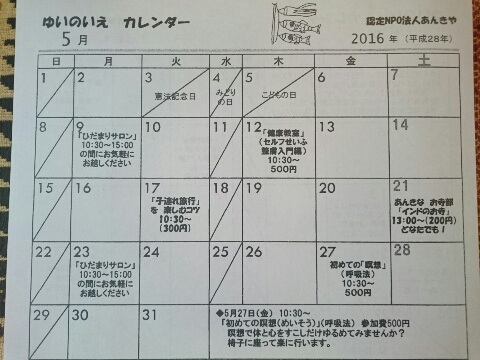 ゆいのいえ カレンダー
認定NPO法人あんきや
5月
2016年(平成28年)
日 月 火 水 木 金 土
1 2 3 4 5 6 7
憲法記念日
みどりの日
こどもの日
8 9 10 11 12 13 14
「ひだまりサロン」
10:30~15:00
の間にお気軽に
お越しください
「健康教室」
(セルフせいふ
整膚入門編)
10:30~
500円
15 16 17 18 19 20 21
「子連れ旅行」
を 楽しむコツ
10:30~
(300円)
あんきな お寺部
「インドのお寺」
13:00~(200円)
どなたでも!
22 23 24 25 26 27 28
「ひだまりサロン」
10:30~15:00
の間にお気軽に
お越しください
初めての「瞑想」
(呼吸法)
10:30~
500円
29 30 31
◆5月27日(金) 10:30~
「初めての瞑想(めいそう)」(呼吸法) 参加費500円
瞑想で体と心をすこしだけゆるめてみませんか?
椅子に座って楽に行います。